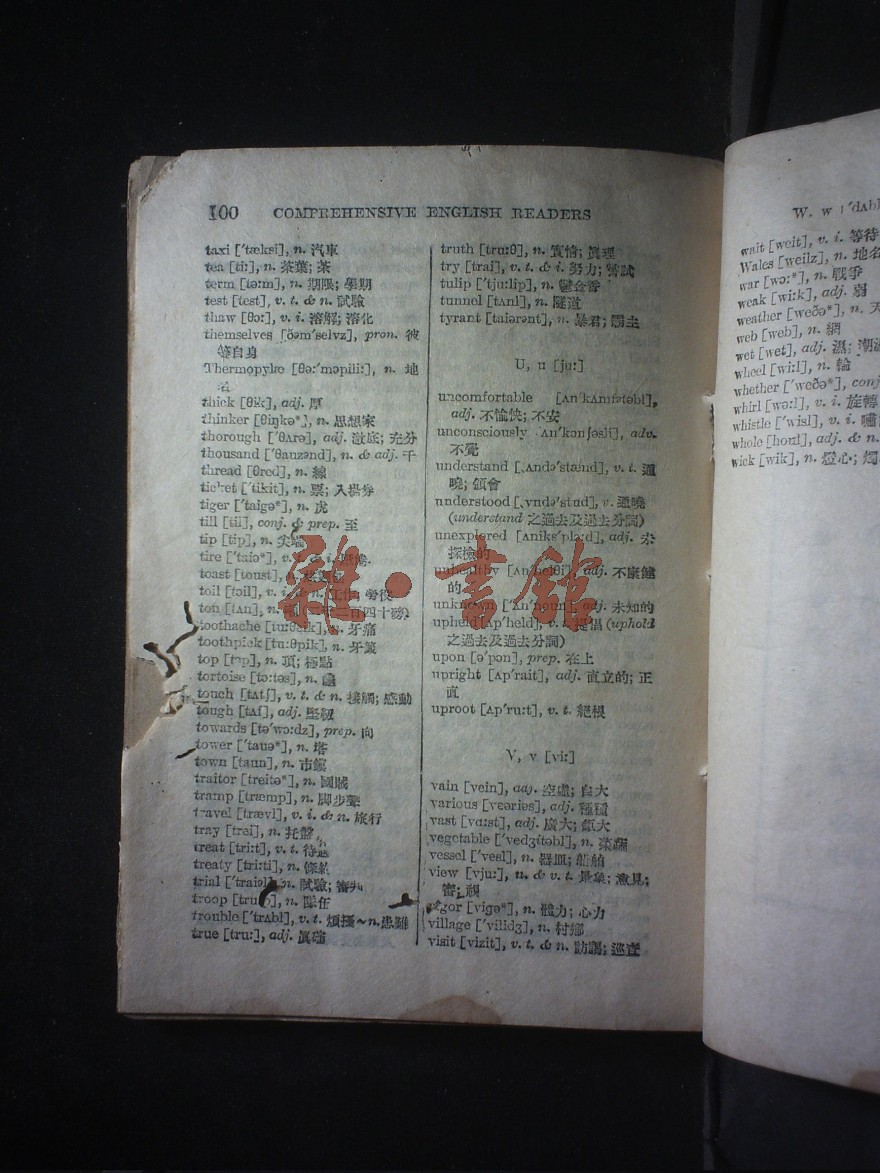 100 COMPREHENSIVE ENGLISH READERS
taxi ['tæksi], n. 汽車
tea [ti:], n. 茶葉; 茶
term [tə:m], n. 期限; 學期
test [test], v. t. & n. 試驗
thaw [θɔ:], v. i. 溶解; 溶化
themselves [ðəm'selvz], pron. 彼
等自身
Thermopylæ [θə:'mɔpili:], n. 地
名
thick [θik], adj. 厚
thinker [θiŋkə*], n. 思想家
thorough ['θʌrə], adj. 澈底; 充分
thousand ['θauzənd], n. & adj. 千
thread [θred], n. 線
ticket ['tikit], n. 票; 入場券
tiger ['taigə*], n. 虎
till [til], conj. & prep. 至
tip [tip], n. 尖端
tire ['taiə*], v. t. & i.
toast [toust],
toil [tɔil], v. i. & n. 工作; 勞役
ton [tʌn], n. 二百四十磅)
toothache [tu:θeik], n. 牙痛
toothpick [tu:θpik], n. 牙籤
top [tɔp], n. 頂; 極點
tortoise [tɔ:təs], n. 龜
touch [tʌtʃ], v. t. & n. 接觸; 感動
tough [tʌf], adj. 堅韌
towards [tə'wɔ:dz], prep. 向
tower ['tauə*], n. 塔
town [taun], n. 市鎮
traitor [treitə*], n. 國賊
tramp [træmp], n. 脚步聲
travel [trævl], v. i. & n. 旅行
tray [trei], n. 托盤
treat [tri:t], v. t. 待遇
treaty [tri:ti], n. 條約
trial ['traiəl], n. 試驗; 審判
troop [tru:p], n. 隊伍
trouble ['trʌbl], v. t. 煩擾～n. 患難
true [tru:], adj. 眞確
truth [tru:θ], n. 實情; 眞理
try [trai], v. t. & i. 努力; 嘗試
tulip ['tju:lip], n. 鬱金香
tunnel [tʌnl], n. 隧道
tyrant [taiərənt], n. 暴君; 霸主
U, u [ju:]
uncomfortable [ʌn'kʌmfətəbl],
adj. 不愉快; 不安
unconsciously ʌn'kɔnʃəsli], adv.
不覺
understand [ˌʌndə'stænd], v. t. 通
曉; 領會
understood [ˌʌndə'stud], v. 通曉
(understand 之過去及過去分詞)
unexplored [ʌniks'plɔ:d], adj. 未
探檢的
unhealthy [ʌn'helθi], adj. 不康健
的
unknown ['ʌn'noun], adj. 未知的
upheld [ʌp'held], v. t. 提倡 (uphold
之過去及過去分詞)
upon [ə'pɔn], prep. 在上
upright [ʌp'rait], adj. 直立的; 正
直
uproot [ʌp'ru:t], v. t. 絕根
V, v [vi:]
vain [vein], adj. 空虛; 自大
various [vɛəriəs], adj. 種種
vast [va:st], adj. 廣大; 甚大
vegetable ['vedʒitəbl], n. 菜蔬
vessel ['vesl], n. 器皿; 船舶
view [vju:], n. & v. t. 景象; 意見;
審視
vigor [vigə*], n. 體力; 心力
village ['vilidʒ], n. 村鄉
visit [vizit], v. t. & n. 訪謁; 巡查
W. w ['dʌbl
wait [weit], v. i. 等待
Wales [weilz], n. 地名
war [wɔ:*], n. 戰爭
weak [wi:k], adj. 弱
weather [weðə*], n. 天
web [web], n. 網
wet [wet], adj. 濕; 潮濕
wheel [wi:l], n. 輪
whether ['weðə*], conj
whirl [wə:l], v. i. 旋轉
whistle ['wisl], v. i. 嘯
whole [houl], adj. & n.
wick [wik], n. 燈心; 燭
雜·書館